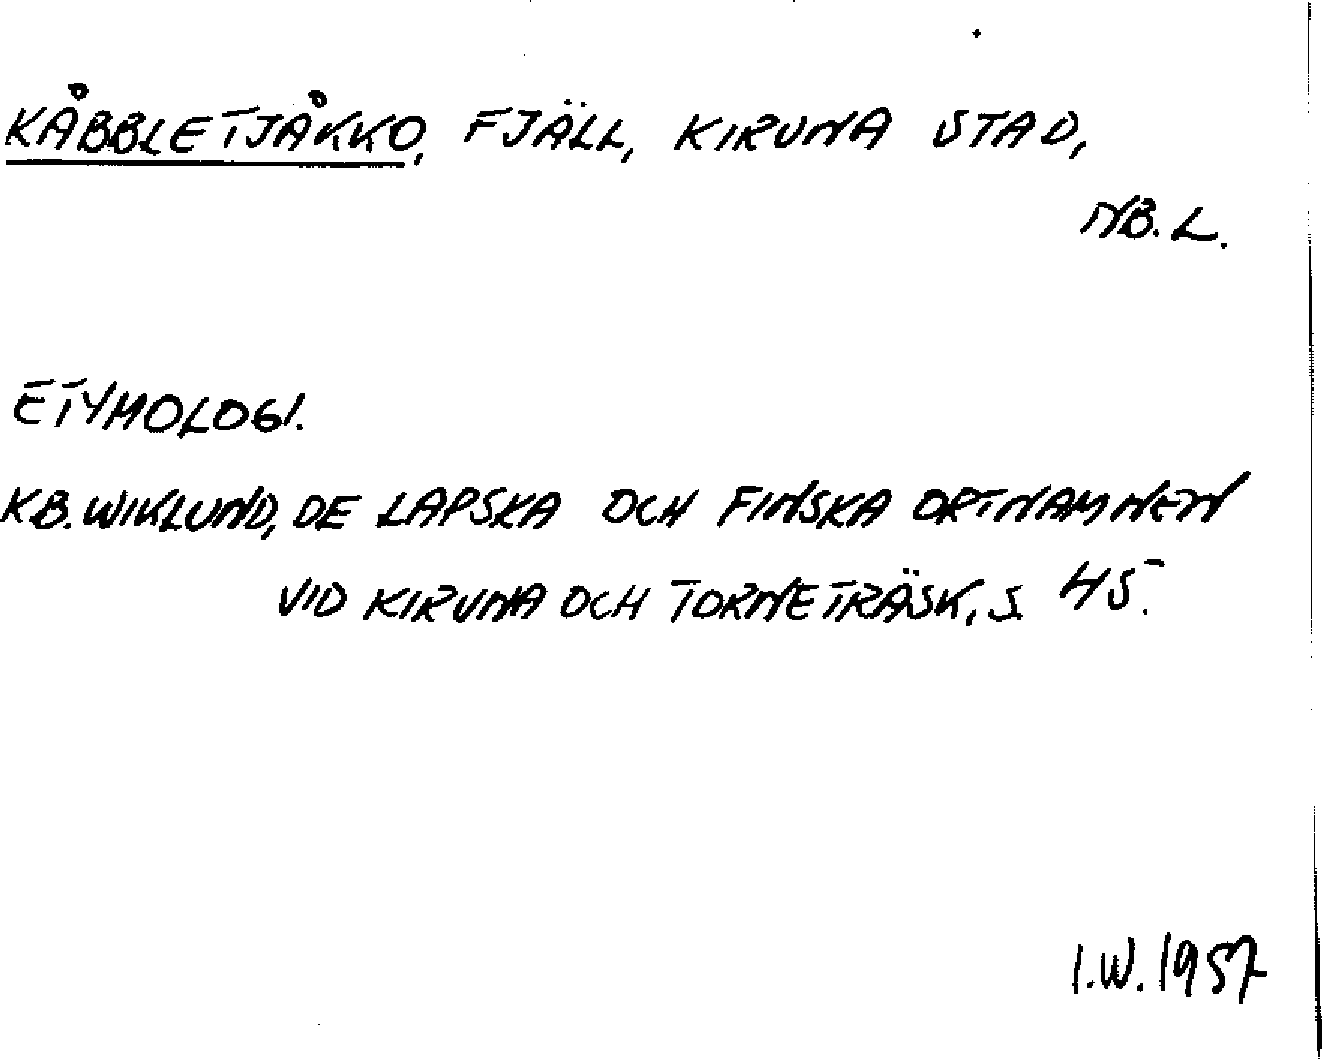 KÅBBLETJÅKKO, FJÄLL, KIRUNA STAD,
NB. L.
ETYMOLOGI.
KB. WIKLUND, DE LAPSKA OCH FINSKA ORTNAMNEN
VID KIRUNA OCH TORNETRÄSK, S. 45.
I.W. 1957